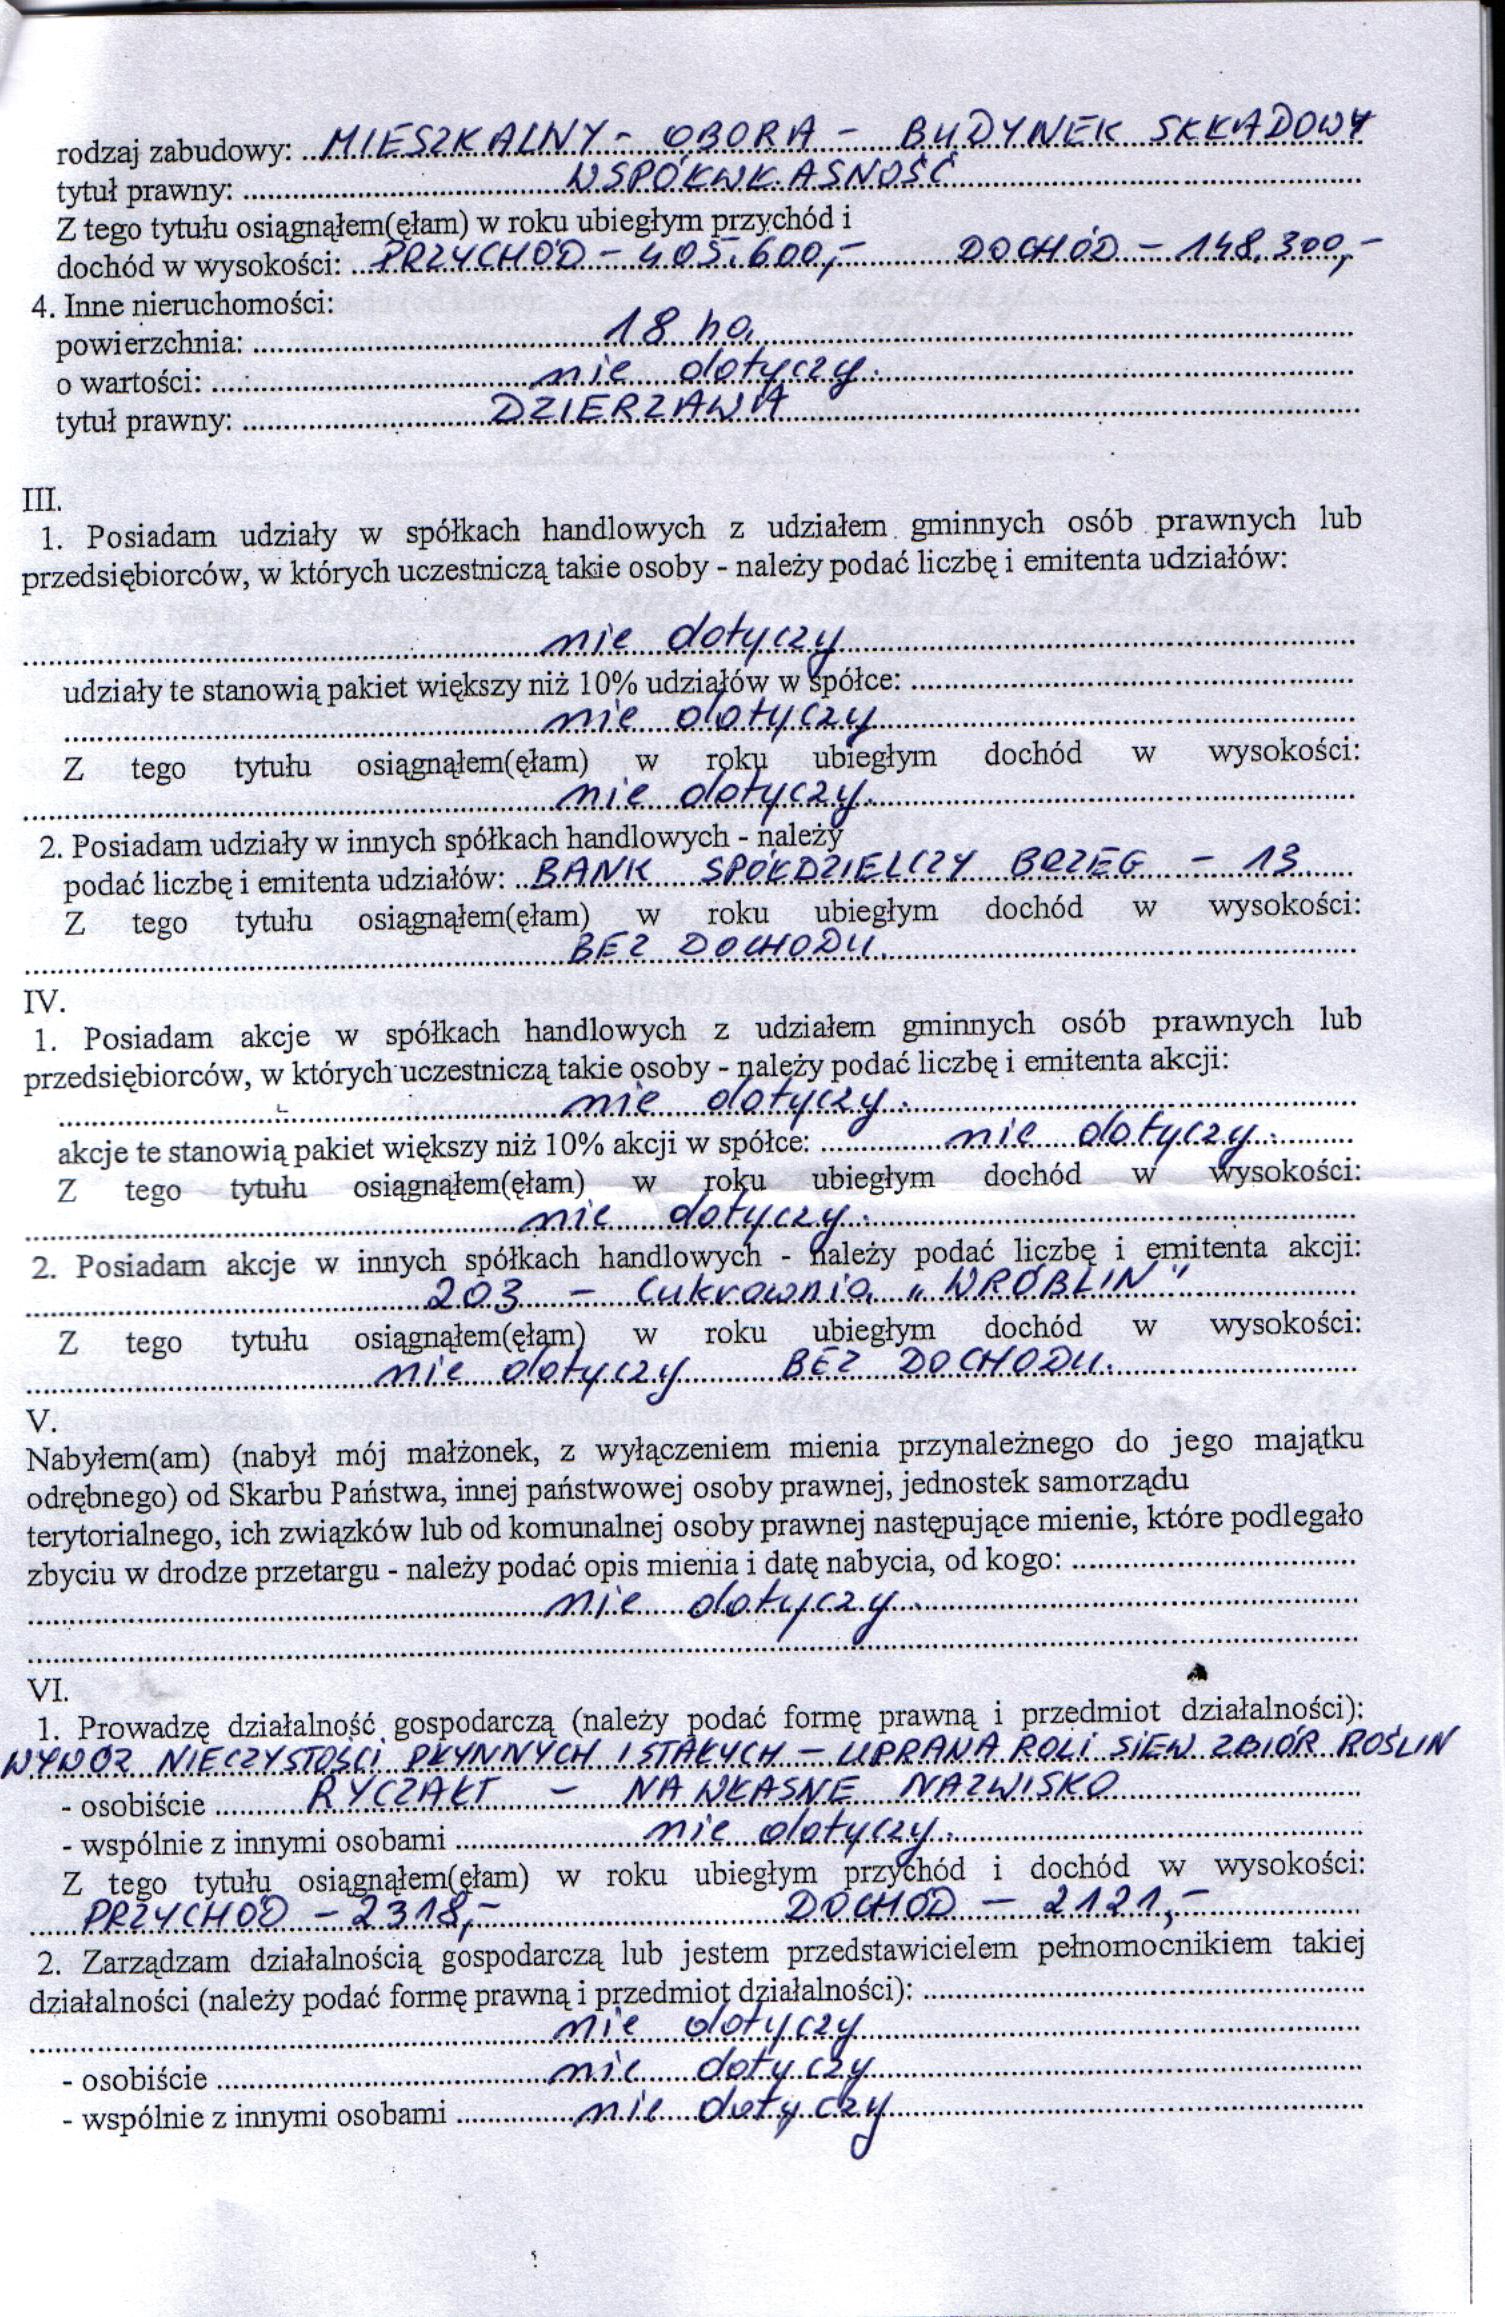 rodzaj zabudowy: ...MIESZKALNY - OBORA - BUDYNEK SKŁADOWY
tytuł prawny: ...WSPÓŁWŁASNOŚĆ...
Z tego tytułu osiągnąłem(ęłam) w roku ubiegłym przychód i
dochód w wysokości: ...PRZYCHÓD - 405.600,- ... DOCHÓD - 148.300,-
4. Inne nieruchomości:
powierzchnia: ...18 ha...
o wartości: ...nie dotyczy...
tytuł prawny: ...DZIERZAWA...
III.
1. Posiadam udziały w spółkach handlowych z udziałem gminnych osób prawnych lub
przedsiębiorców, w których uczestniczą takie osoby - należy podać liczbę i emitenta udziałów:
...nie dotyczy...
udziały te stanowią pakiet większy niż 10% udziałów w spółce: ...
...nie dotyczy...
Z tego tytułu osiągnąłem(ęłam) w roku ubiegłym dochód w wysokości:
...nie dotyczy...
2. Posiadam udziały w innych spółkach handlowych - należy
podać liczbę i emitenta udziałów: ...BANK SPÓŁDZIELCZY BRZEG - 13...
Z tego tytułu osiągnąłem(ęłam) w roku ubiegłym dochód w wysokości:
...BEZ DOCHODU...
IV.
1. Posiadam akcje w spółkach handlowych z udziałem gminnych osób prawnych lub
przedsiębiorców, w których uczestniczą takie osoby - należy podać liczbę i emitenta akcji:
...nie dotyczy...
akcje te stanowią pakiet większy niż 10% akcji w spółce: ...nie dotyczy...
Z tego tytułu osiągnąłem(ęłam) w roku ubiegłym dochód w wysokości:
...nie dotyczy...
2. Posiadam akcje w innych spółkach handlowych - należy podać liczbę i emitenta akcji:
...203 - Cukrownia „WRÓBLIN"...
Z tego tytułu osiągnąłem(ęłam) w roku ubiegłym dochód w wysokości:
...nie dotyczy BEZ DOCHODU...
V.
Nabyłem(am) (nabył mój małżonek, z wyłączeniem mienia przynależnego do jego majątku
odrębnego) od Skarbu Państwa, innej państwowej osoby prawnej, jednostek samorządu
terytorialnego, ich związków lub od komunalnej osoby prawnej następujące mienie, które podlegało
zbyciu w drodze przetargu - należy podać opis mienia i datę nabycia, od kogo: ...
...nie dotyczy...
VI.
1. Prowadzę działalność gospodarczą (należy podać formę prawną i przedmiot działalności):
WYWÓZ NIECZYSTOŚCI PŁYNNYCH I STAŁYCH - UPRAWA ROLI SIEW ZBIÓR ROŚLIN
- osobiście ...RYCZAŁT - NA WŁASNE NAZWISKO...
- wspólnie z innymi osobami ...nie dotyczy...
Z tego tytułu osiągnąłem(ęłam) w roku ubiegłym przychód i dochód w wysokości:
...PRZYCHÓD - 2318,- ... DOCHÓD - 2121,-...
2. Zarządzam działalnością gospodarczą lub jestem przedstawicielem pełnomocnikiem takiej
działalności (należy podać formę prawną i przedmiot działalności): ...
...nie dotyczy...
- osobiście ...nie dotyczy...
- wspólnie z innymi osobami ...nie dotyczy...